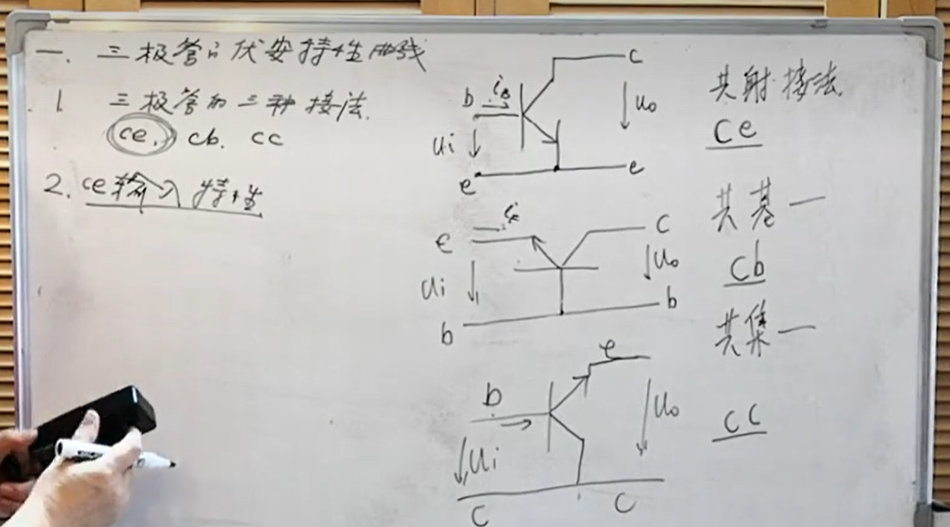 一. 三极管的伏安特性曲线
1. 三极管的三种接法.
ce. cb. cc
2. ce输入特性
c
b iB
ui uo
e e
共射接法
ce
e ie c
ui uo
b b
共基一
cb
共集一
e
b
ui uo
c c
cc